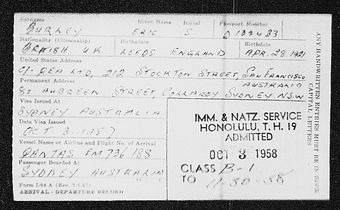 Surname Given Name Passport Number
BURNEY ERIC S 0139483
Nationality (Citizenship) Birthplace Birthdate
BRITISH UK LEEDS ENGLAND APR. 28. 1921
United States Address
C/- REA LTD, 212 STOCKTON STREET, SAN FRANCISCO
Permanent Address AUSTRALIA
80 AUBREEN STREET COLLAROY SYDNEY, N.S.W.
Visa Issued At
SYDNEY AUSTRALIA
Date Visa Issued
OCT 3. 1957
Vessel Name or Airline and Flight No. of Arrival
QANTAS EM 736/188
Passenger Boarded at
SYDNEY AUSTRALIA
Form I-94 A
ARRIVAL-DEPARTURE RECORD
IMM. & NATZ. SERVICE
HONOLULU, T.H. 19
ADMITTED
OCT 3 1958
CLASS B-1
TO 11-30-58
ANY HANDWRITTEN ENTRIES MUST BE IN
CAPITAL LETTERS